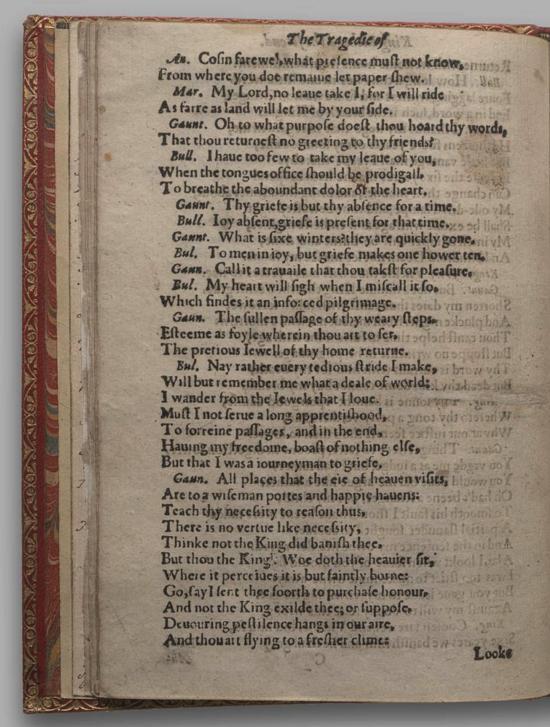 The Tragedie of
Au. Cosin farewel, what presence must not know,
From where you doe remaine let paper shew.
Mar. My Lord, no leaue take I, for I will ride
As farre as land will let me by your side.
Gaunt. Oh to what purpose doest thou hoard thy words,
That thou returnest no greeting to thy friends?
Bull. I haue too few to take my leaue of you,
When the tongues office should be prodigall,
To breathe the aboundant dolor of the heart.
Gaunt. Thy griefe is but thy absence for a time.
Bull. Ioy absent, griefe is present for that time.
Gaunt. What is sixe winters? they are quickly gone,
Bul. To men in ioy, but griefe makes one hower ten.
Gaun. Call it a trauaile that thou takst for pleasure,
Bul. My heart will sigh when I miscall it so,
Which findes it an inforced pilgrimage.
Gaun. The sullen passage of thy weary steps,
Esteeme as foyle wherein thou art to set,
The pretious Iewell of thy home returne.
Bul. Nay rather euery tedious stride I make,
Will but remember me what a deale of world:
I wander from the Iewels that I loue.
Must I not serue a long apprentishood,
To forreine passages, and in the end,
Hauing my freedome, boast of nothing else,
But that I was a iourneyman to griefe,
Gaun. All places that the eie of heauen visits,
Are to a wiseman portes and happie hauens:
Teach thy necessity to reason thus,
There is no vertue like necessity,
Thinke not the King did banish thee,
But thou the King. Woe doth the heauier sit,
Where it perceiues it is but faintly borne:
Go, say I sent thee foorth to purchase honour,
And not the King exilde thee; or suppose,
Deuouring pestilence hangs in our aire,
And thou art flying to a fresher clime:
Looke